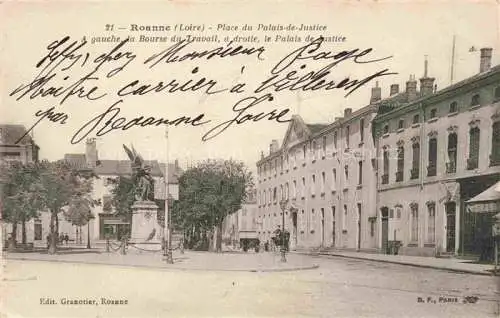 21 - Roanne (Loire) - Place du Palais-de-Justice
A gauche, la Bourse du Travail, à droite, le Palais de Justice
chez Monsieur Page
Maître carrier à Villerest
par Roanne Loire
Edit. Granotier, Roanne
B. F., PARIS